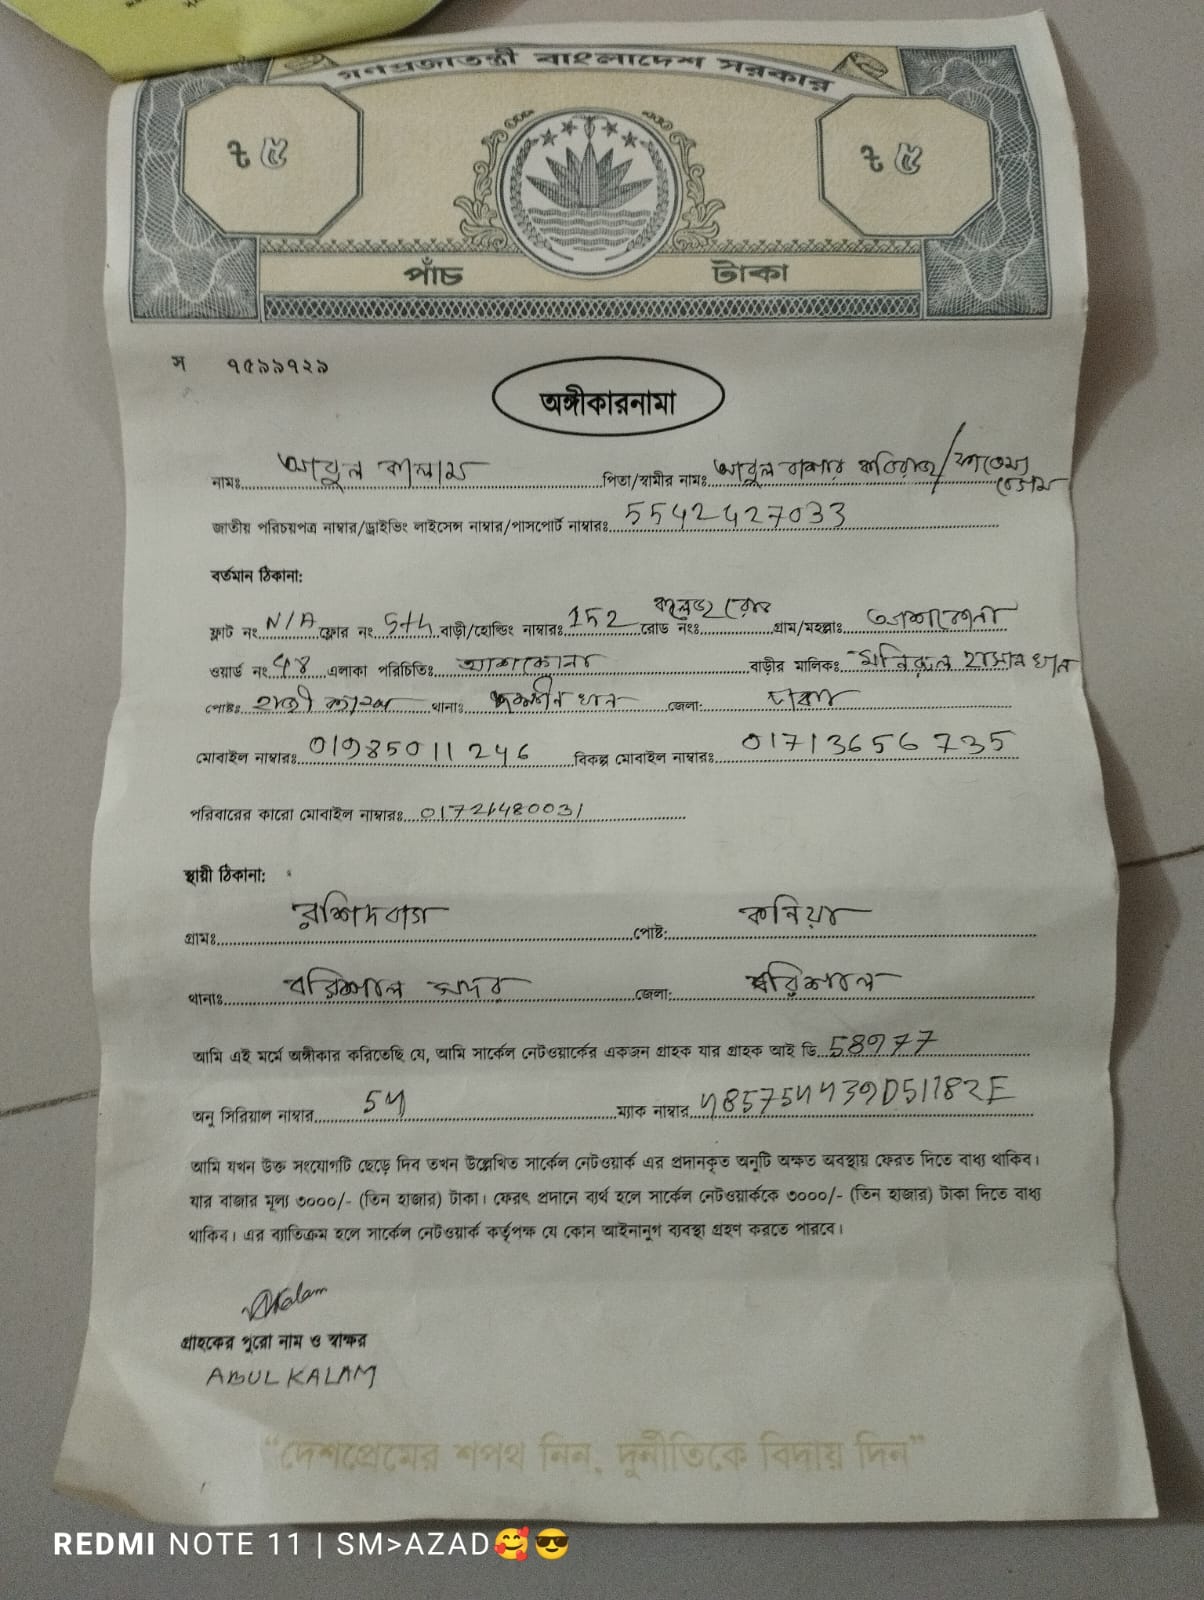 গণপ্রজাতন্ত্রী বাংলাদেশ সরকার
৳ ৫ ৳ ৫
পাঁচ টাকা
স ৭৫৯৯৭২৯
অঙ্গীকারনামা
নামঃ আবুল কালাম পিতা/স্বামীর নামঃ আবুল বাশার কবিরাজ/ফাতেমা বেগম
জাতীয় পরিচয়পত্র নাম্বার/ড্রাইভিং লাইসেন্স নাম্বার/পাসপোর্ট নাম্বারঃ 5542427033
বর্তমান ঠিকানা:
ফ্লাট নং N/A ফ্লোর নং 5th বাড়ী/হোল্ডিং নাম্বারঃ 152 রোড নংঃ কলেজ রোড গ্রাম/মহল্লাঃ আশকোনা
ওয়ার্ড নং 48 এলাকা পরিচিতিঃ আশকোনা বাড়ীর মালিকঃ মনিরুল হাসান খান
পোষ্টঃ হাজী ক্যাম্প থানাঃ দক্ষিণ খান জেলা: ঢাকা
মোবাইল নাম্বারঃ 01985011246 বিকল্প মোবাইল নাম্বারঃ 01713656735
পরিবারের কারো মোবাইল নাম্বারঃ
স্থায়ী ঠিকানা:
গ্রামঃ পোষ্ট:
থানাঃ বরিশাল সদর জেলা: বরিশাল
আমি এই মর্মে অঙ্গীকার করিতেছি যে, আমি সার্কেল নেটওয়ার্কের একজন গ্রাহক যার গ্রাহক আই ডি 58977
অনু সিরিয়াল নাম্বার 54 ম্যাক নাম্বার 485754439D51182E
আমি যখন উক্ত সংযোগটি ছেড়ে দিব তখন উল্লেখিত সার্কেল নেটওয়ার্ক এর প্রদানকৃত অনুটি অক্ষত অবস্থায় ফেরত দিতে বাধ্য থাকিব।
যার বাজার মূল্য ৩০০০/- (তিন হাজার) টাকা। ফেরৎ প্রদানে ব্যর্থ হলে সার্কেল নেটওয়ার্ককে ৩০০০/- (তিন হাজার) টাকা দিতে বাধ্য
থাকিব। এর ব্যাতিক্রম হলে সার্কেল নেটওয়ার্ক কর্তৃপক্ষ যে কোন আইনানুগ ব্যবস্থা গ্রহণ করতে পারবে।
গ্রাহকের পুরো নাম ও স্বাক্ষর
ABUL KALAM
“দেশপ্রেমের শপথ নিন, দুর্নীতিকে বিদায় দিন”
REDMI NOTE 11 | SM>AZAD🥰😎